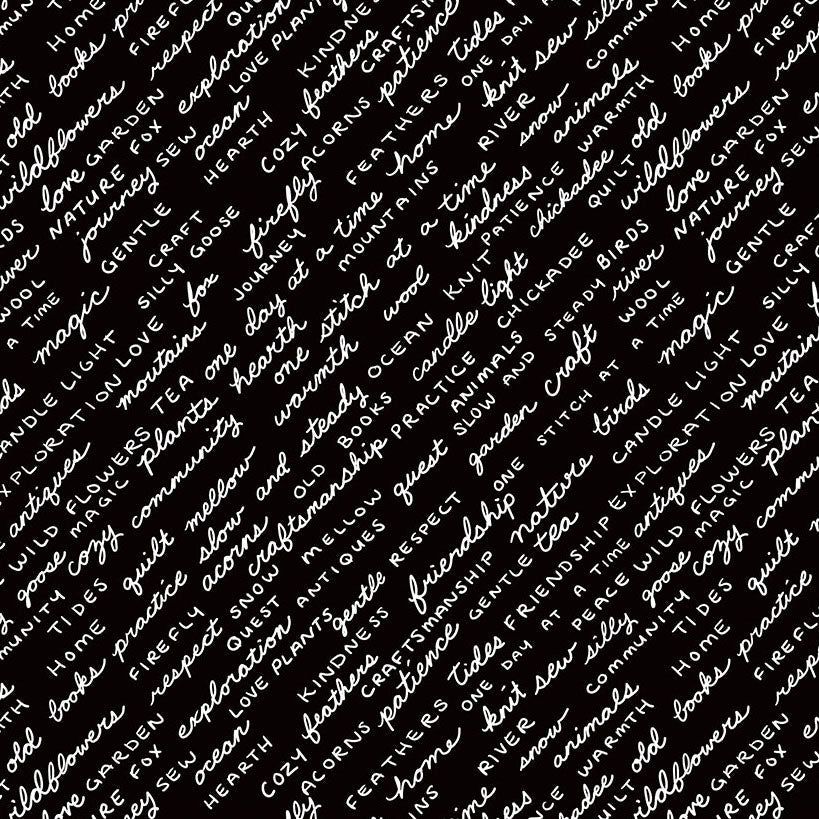 HOME
books
FIREFLY
respect
exploration
LOVE PLANTS
KINDNESS
feathers
CRAFTSM
patience
tides
ONE DAY
knit sew silly
COMMUN
HOME
books
FIREFLY
old
wildflowers
love GARDEN
NATURE FOX
journey SEW
ocean
HEARTH
COZY
ACORNS
FEATHERS
home
RIVER
snow
animals
WARMTH
QUILT old
wildflowers
love GARDEN
NATURE FOX
journey SEW
magic GENTLE
CRAFT
SILLY GOOSE
firefly
JOURNEY
day at a time
MOUNTAINS
one stitch at a time
kindness
PATIENCE
chickadee
WOOL
A TIME
fox
hearth
warmth
wool
KNIT
candle light
CHICKADEE
BIRDS
river
WOOL
A TIME
magic GENTLE
CANDLE LIGHT
EXPLORATION LOVE
moutains
TEA one
plants
community
slow and steady
OCEAN
OLD BOOKS
PRACTICE
ANIMALS
SLOW AND STEADY
garden craft
ONE STITCH AT A TIME
birds
CANDLE LIGHT
EXPLORATION LOVE
antiques
WILD FLOWERS
goose MAGIC
cozy
quilt mellow
acorns
craftsmanship
MELLOW
quest
ANTIQUES
gentle RESPECT
friendship
nature
tea
FRIENDSHIP
antiques
PEACE WILD FLOWERS
goose MAGIC
cozy
TIDES
HOME
books practice
FIREFLY
respect SNOW
QUEST
exploration
LOVE PLANTS
KINDNESS
feathers
CRAFTSMANSHIP
patience
GENTLE
tides
ONE DAY AT A TIME
knit sew silly
COMMUNITY
TIDES
HOME
quilt
books practice
FIREFLY
old
wildflowers
love GARDEN
FOX
SEW
ocean
HEARTH
COZY
ACORNS
FEATHERS
home
RIVER
snow
animals
WARMTH
QUILT old
wildflowers
love GARDEN
NATURE FOX
journey SEW